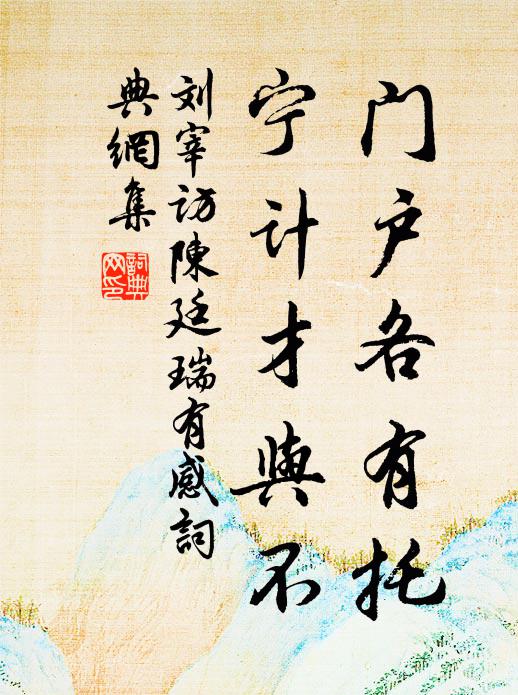 门户各有托
宁计才與不
刘宰访陳廷瑞有感詞
典網集
詞典网印